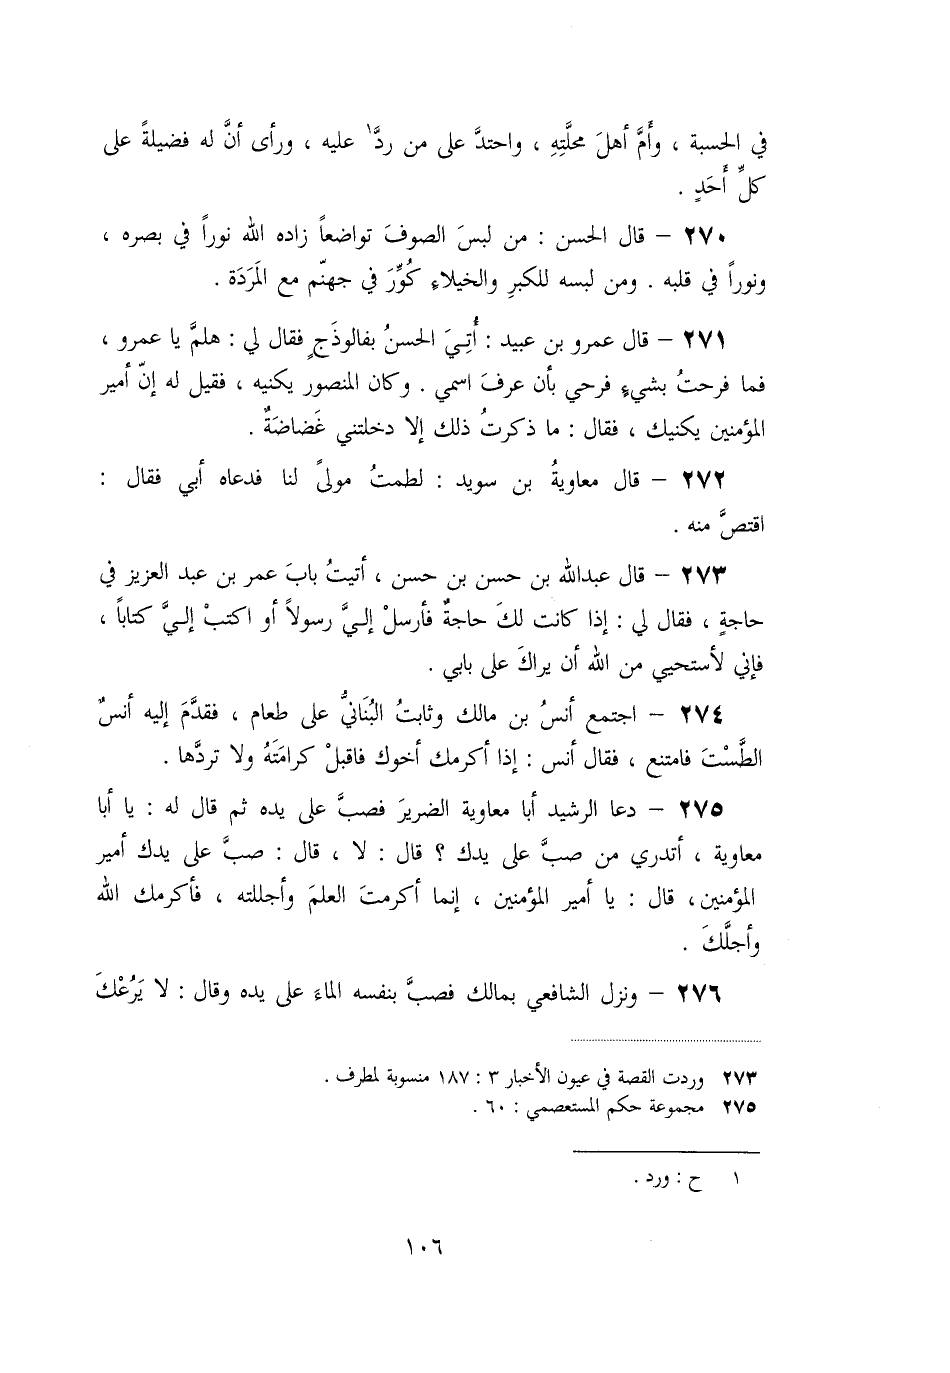 في الحسبة ، وأَمَّ أهلَ محلَّتِهِ ، واحتدَّ على من ردَّ١ عليه ، ورأى أنَّ له فضيلةً على
كلِّ أَحَدٍ .
٢٧٠ – قال الحسن : من لبسَ الصوفَ تواضعاً زاده الله نوراً في بصره ،
ونوراً في قلبه . ومن لبسه للكبرِ والخيلاءِ كُوِّرَ في جهنّم مع المَرَدَة .
٢٧١ – قال عمرو بن عبيد : أُتِيَ الحسنُ بفالوذَجٍ فقال لي : هلمَّ يا عمرو ،
فما فرحتُ بشيءٍ فرحي بأن عرفَ اسمي . وكان المنصور يكنيه ، فقيل له إنّ أمير
المؤمنين يكنيك ، فقال : ما ذكرتُ ذلك إلا دخلتني غَضاضَةٌ .
٢٧٢ – قال معاويةُ بن سويد : لطمتُ مولىً لنا فدعاه أبي فقال :
اقتصَّ منه .
٢٧٣ – قال عبدالله بن حسن بن حسن ، أتيتُ بابَ عمر بن عبد العزيز في
حاجةٍ ، فقال لي : إذا كانت لكَ حاجةٌ فأرسلْ إليَّ رسولاً أو اكتبْ إليَّ كتاباً ،
فإني لأستحيي من الله أن يراكَ على بابي .
٢٧٤ – اجتمع أنسُ بن مالك وثابتُ البُنَانيُّ على طعام ، فقدَّمَ إليه أنسٌ
الطَّسْتَ فامتنع ، فقال أنس : إذا أكرمك أخوك فاقبلْ كرامَتَهُ ولا تردَّها .
٢٧٥ – دعا الرشيد أبا معاوية الضريرَ فصبَّ على يده ثم قال له : يا أبا
معاوية ، أتدري من صبَّ على يدك ؟ قال : لا ، قال : صبَّ على يدك أمير
المؤمنين، قال : يا أمير المؤمنين ، إنما أكرمتَ العلمَ وأجللته ، فأكرمك الله
وأجلَّكَ .
٢٧٦ – ونزل الشافعي بمالك فصبَّ بنفسه الماءَ على يده وقال : لا يَرُعْكَ
٢٧٣ وردت القصة في عيون الأخبار ٣ : ١٨٧ منسوبة لمطرف .
٢٧٥ مجموعة حكم المستعصمي : ٦٠ .
١ ح : ورد .
١٠٦